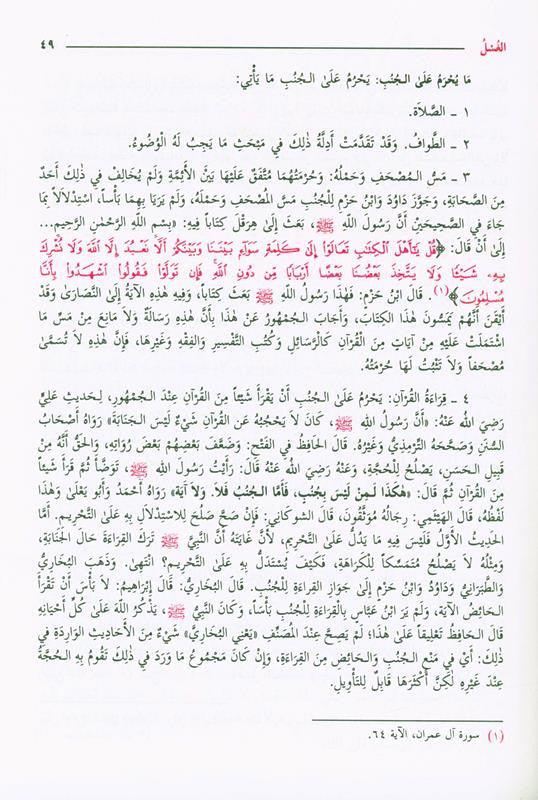 الغُسْلُ ٤٩
مَا يُحْرَمُ عَلَى الجُنُبِ: يَحْرُمُ عَلَى الجُنُبِ مَا يَأْتِي:
١ ـ الصَّلاَة.
٢ ـ الطَّوافُ. وَقَدْ تَقَدَّمَتْ أَدِلَّةُ ذٰلِكَ فِي مَبْحَثِ مَا يَجِبُ لَهُ الْوُضُوءُ.
٣ ـ مَسُّ المُصْحَفِ وَحَمْلُهُ: وَحُرْمَتُهُمَا مُتَّفَقٌ عَلَيْهَا بَيْنَ الأَئِمَّةِ وَلَمْ يُخَالِفْ فِي ذٰلِكَ أَحَدٌ
مِنَ الصَّحَابَةِ، وَجَوَّزَ دَاوُدَ وَابْنُ حَزْمٍ لِلْجُنُبِ مَسَّ المُصْحَفِ وَحَمْلَهُ، وَلَمْ يَرَيَا بِهِمَا بَأْساً، اسْتِدْلاَلاً بِمَا
جَاءَ فِي الصَّحِيحَيْنِ أَنَّ رَسُولَ اللهِ ﷺ، بَعَثَ إِلَىٰ هِرَقْلَ كِتَاباً فِيهِ: «بِسْمِ اللَّهِ الرَّحْمٰنِ الرَّحِيمِ...
إِلَىٰ أَنْ قَالَ: ﴿قُلْ يَٰٓأَهْلَ ٱلْكِتَٰبِ تَعَالَوْا۟ إِلَىٰ كَلِمَةٍۢ سَوَآءٍۭ بَيْنَنَا وَبَيْنَكُمْ أَلَّا نَعْبُدَ إِلَّا ٱللَّهَ وَلَا نُشْرِكَ
بِهِۦ شَيْـًٔا وَلَا يَتَّخِذَ بَعْضُنَا بَعْضًا أَرْبَابًا مِّن دُونِ ٱللَّهِ ۚ فَإِن تَوَلَّوْا۟ فَقُولُوا۟ ٱشْهَدُوا۟ بِأَنَّا
مُسْلِمُونَ﴾(١). قَالَ ابْنُ حَزْمٍ: فَهٰذَا رَسُولُ اللهِ ﷺ بَعَثَ كِتَاباً، وَفِيهِ هٰذِهِ الآيَةُ إِلَى النَّصَارَىٰ، وَقَدْ
أَيْقَنَ أَنَّهُمْ يَمَسُّونَ هٰذَا الكِتَابَ، وَأَجَابَ الجُمْهُورُ عَنْ هٰذَا بِأَنَّ هٰذِهِ رِسَالَةٌ وَلاَ مَانِعَ مِنْ مَسِّ مَا
اشْتَمَلَتْ عَلَيْهِ مِنْ آيَاتٍ مِنَ الْقُرْآنِ كَالرَّسَائِلِ وَكُتُبِ التَّفْسِيرِ وَالفِقْهِ وَغَيْرِهَا، فَإِنَّ هٰذِهِ لاَ تُسَمَّىٰ
مُصْحَفاً وَلاَ تَثْبُتُ لَهَا حُرْمَتُهُ.
٤ ـ قِرَاءَةُ القُرْآنِ: يَحْرُمُ عَلَى الجُنُبِ أَنْ يَقْرَأَ شَيْئاً مِنَ القُرْآنِ عِنْدَ الجُمْهُورِ، لِحَدِيثِ عَلِيٍّ
رَضِيَ اللهُ عَنْهُ: «أَنَّ رَسُولَ اللهِ ﷺ، كَانَ لاَ يَحْجُبُهُ عَنِ القُرْآنِ شَيْءٌ لَيْسَ الجَنَابَةَ» رَوَاهُ أَصْحَابُ
السُّنَنِ وَصَحَّحَهُ التِّرْمِذِيُّ وَغَيْرُهُ. قَالَ الحَافِظُ فِي الفَتْحِ: وَضَعَّفَ بَعْضُهُمْ بَعْضَ رُوَاتِهِ، وَالحَقُّ أَنَّهُ مِنْ
قَبِيلِ الحَسَنِ، يَصْلُحُ لِلْحُجَّةِ، وَعَنْهُ رَضِيَ اللَّهُ عَنْهُ قَالَ: رَأَيْتُ رَسُولَ اللهِ ﷺ، تَوَضَّأَ ثُمَّ قَرَأَ شَيْئاً
مِنَ القُرْآنِ ثُمَّ قَالَ: «هٰكَذَا لِمَنْ لَيْسَ بِجُنُبٍ، فَأَمَّا الجُنُبُ فَلاَ. وَلاَ آيَةَ» رَوَاهُ أَحْمَدُ وَأَبُو يَعْلَىٰ وَهٰذَا
لَفْظُهُ، قَالَ الهَيْثَمِي: رِجَالُهُ مُوَثَّقُونَ، قَالَ الشوكانِي: فَإِنْ صَحَّ صَلَحَ لِلاِسْتِدْلاَلِ بِهِ عَلَى التَّحْرِيمِ. أَمَّا
الحَدِيثُ الأَوَّلُ فَلَيْسَ فِيهِ مَا يَدُلُّ عَلَى التَّحْرِيمِ، لأَنَّ غَايَتَهُ أَنَّ النَّبِيَّ ﷺ تَرَكَ القِرَاءَةَ حَالَ الجَنَابَةِ،
وَمِثْلُهُ لاَ يَصْلُحُ مُتَمَسَّكاً لِلْكَرَاهَةِ، فَكَيْفَ يُسْتَدَلُّ بِهِ عَلَى التَّحْرِيمِ؟ انْتَهىٰ. وَذَهَبَ البُخَارِيُّ
وَالطَّبَرَانِيُّ وَدَاوُدُ وَابْنُ حَزْمٍ إِلَىٰ جَوَازِ القِرَاءَةِ لِلْجُنُبِ. قَالَ البُخَارِيُّ: قَالَ إِبْرَاهِيمُ: لاَ بَأْسَ أَنْ تَقْرَأَ
الحَائِضُ الآيَةَ، وَلَمْ يَرَ ابْنُ عَبَّاسٍ بِالْقِرَاءَةِ لِلْجُنُبِ بَأْساً، وَكَانَ النَّبِيُّ ﷺ، يَذْكُرُ اللَّهَ عَلَىٰ كُلِّ أَحْيَانِهِ
قَالَ الحَافِظُ تَعْلِيقاً عَلَىٰ هٰذَا: لَمْ يَصِحَّ عِنْدَ المُصَنِّفِ «يَعْنِي البُخَارِيَّ» شَيْءٌ مِنَ الأَحَادِيثِ الوَارِدَةِ فِي
ذٰلِكَ: أَيْ فِي مَنْعِ الجُنُبِ وَالحَائِضِ مِنَ القِرَاءَةِ، وَإِنْ كَانَ مَجْمُوعُ مَا وَرَدَ فِي ذٰلِكَ تَقُومُ بِهِ الحُجَّةُ
عِنْدَ غَيْرِهِ لٰكِنَّ أَكْثَرَهَا قَابِلٌ لِلتَّأْوِيلِ.
(١) سورة آل عمران، الآية ٦٤.